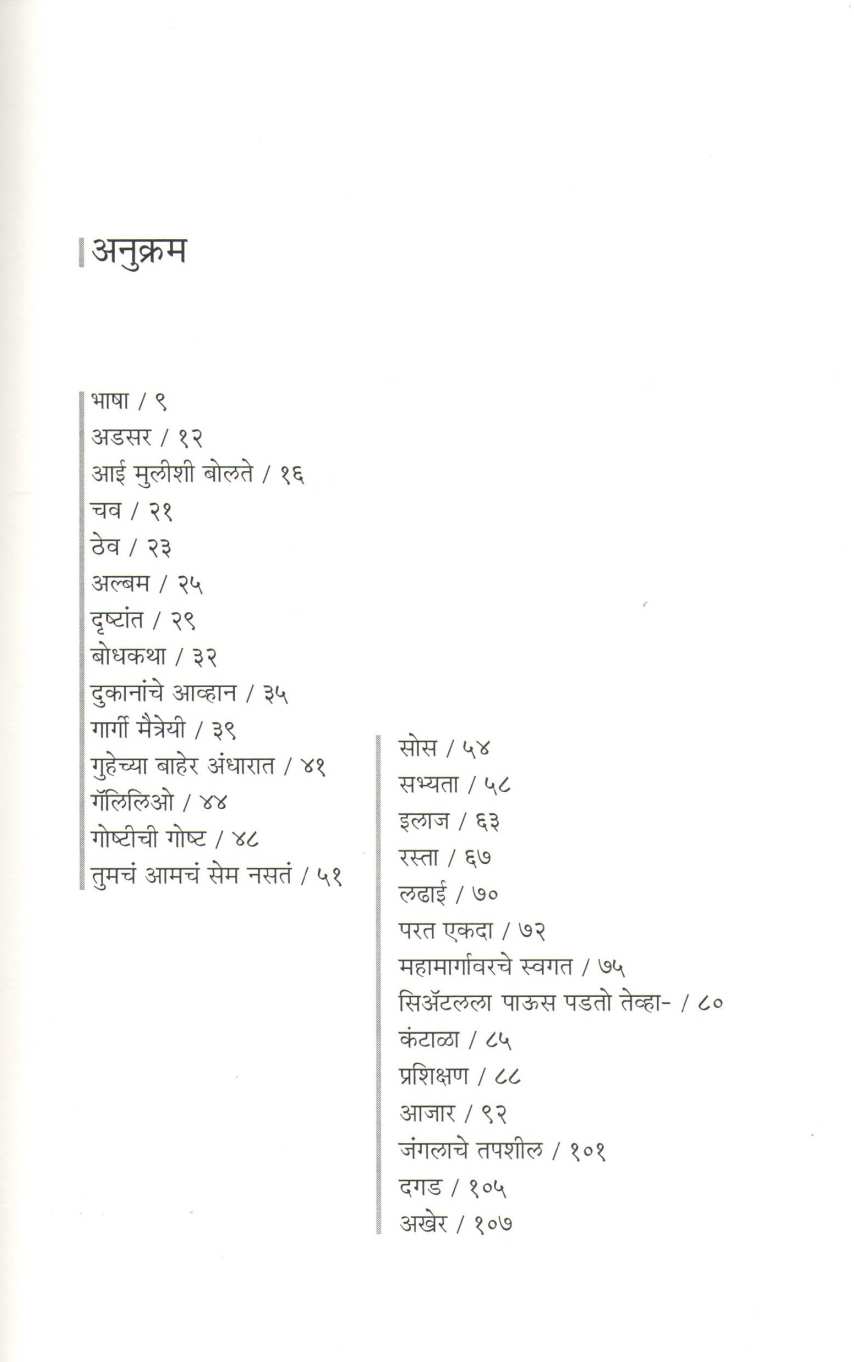 अनुक्रम
भाषा / ९
अडसर / १२
आई मुलीशी बोलते / १६
चव / २१
ठेव / २३
अल्बम / २५
दृष्टांत / २९
बोधकथा / ३२
दुकानांचे आव्हान / ३५
गार्गी मैत्रेयी / ३९
गुहेच्या बाहेर अंधारात / ४१
गॅलिलिओ / ४४
गोष्टीची गोष्ट / ४८
तुमचं आमचं सेम नसतं / ५१
सोस / ५४
सभ्यता / ५८
इलाज / ६३
रस्ता / ६७
लढाई / ७०
परत एकदा / ७२
महामार्गावरचे स्वगत / ७५
सिॲटलला पाऊस पडतो तेव्हा- / ८०
कंटाळा / ८५
प्रशिक्षण / ८८
आजार / ९२
जंगलाचे तपशील / १०१
दगड / १०५
अखेर / १०७